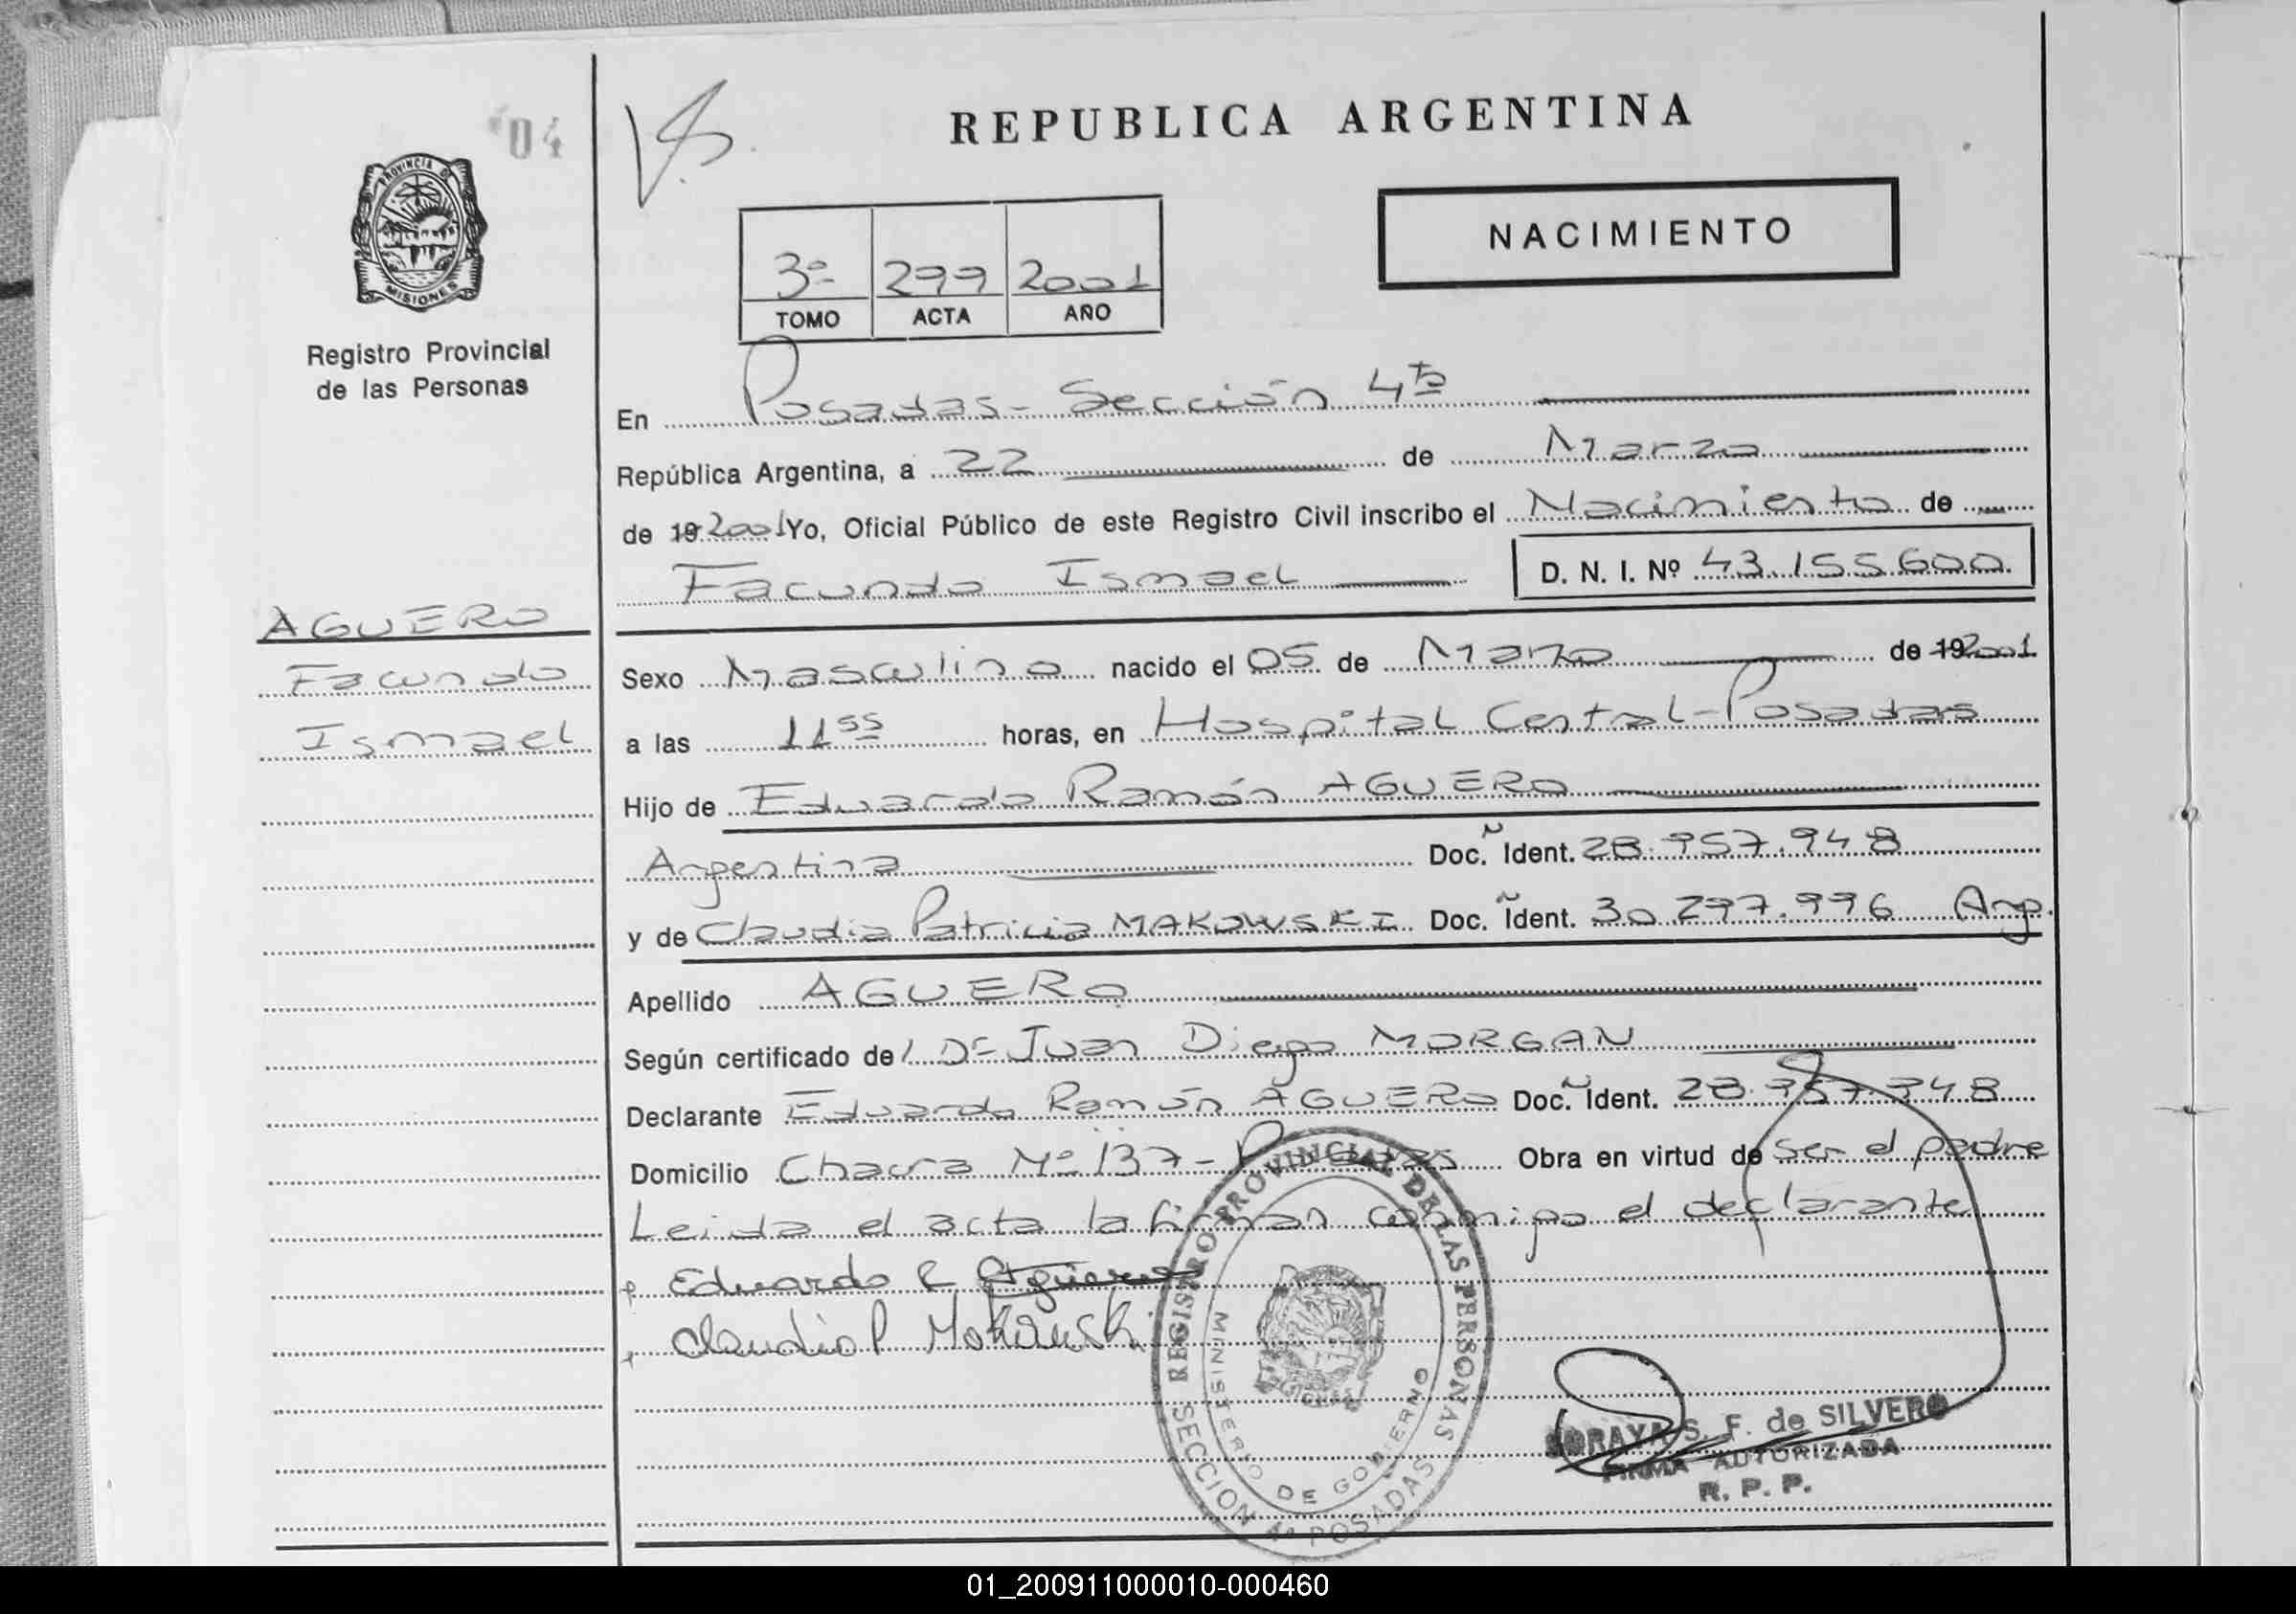 04
PROVINCIA DE
MISIONES
Registro Provincial
de las Personas
AGUERO
Facundo
Ismael
REPUBLICA ARGENTINA
NACIMIENTO
3º 299 2001
TOMO ACTA AÑO
En Posadas - Sección 4ta
República Argentina, a 22 de Marzo
de 19 2001 Yo, Oficial Público de este Registro Civil inscribo el Nacimiento de
Facundo Ismael D. N. I. Nº 43.155.600.
Sexo Masculino nacido el 05 de Marzo de 19 2001
a las 11 55 horas, en Hospital Central - Posadas
Hijo de Eduardo Ramón AGUERO
Argentina Doc. Ident. 28.957.948
y de Claudia Patricia MAKOWSKI Doc. Ident. 30.297.996 Arg.
Apellido AGUERO
Según certificado de / Dr Juan Diego MORGAN
Declarante Eduardo Ramón AGUERO Doc. Ident. 28.957.948
Domicilio Chacra Nº 137 - Posadas Obra en virtud de ser el padre
Leida el acta la firman conmigo el declarante
Eduardo R Agüero
Claudia P Makowski
REGISTRO PROVINCIAL DE LAS PERSONAS
MINISTERIO DE GOBIERNO
SECCION 4ª POSADAS
SORAYA S. F. de SILVERO
FIRMA AUTORIZADA
R. P. P.
01_200911000010-000460